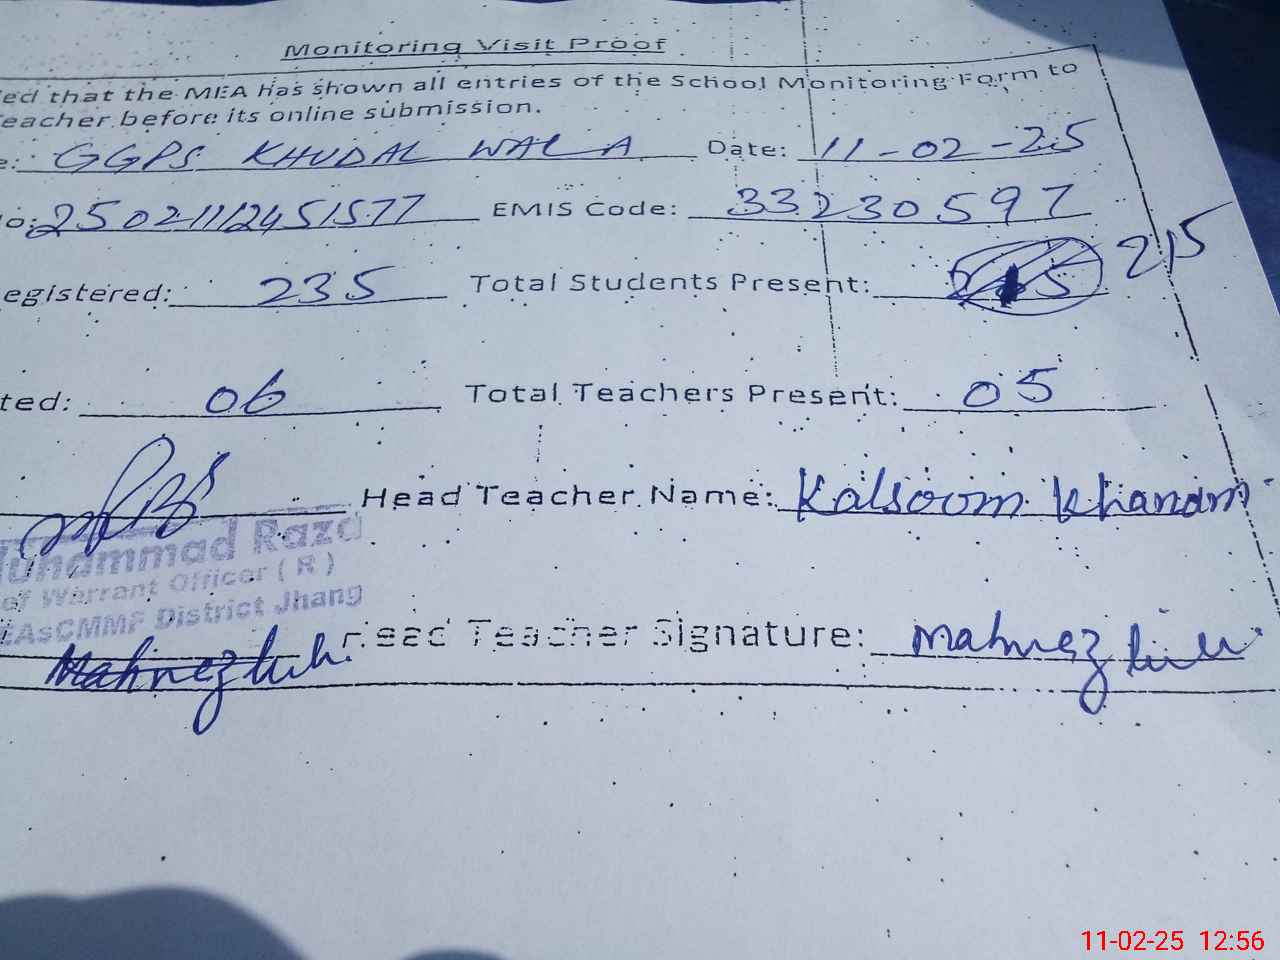 Monitoring Visit Proof
ed that the MEA has shown all entries of the School Monitoring Form to
eacher before its online submission.
e: GGPS KHUDAL WALA Date: 11-02-25
o: 25021112451577 EMIS Code: 33230597
egistered: 235 Total Students Present: 215
ted: 06 Total Teachers Present: 05
Head Teacher Name: Kalsoom Khanam
Muhammad Raza
ef Warrant Officer ( R )
EAsCMMF District Jhang
Head Teacher Signature: Mahnez
11-02-25 12:56